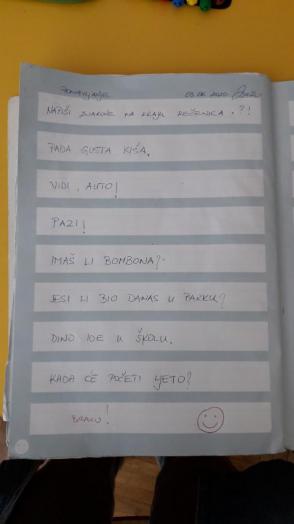 Ponavljanje 03.06.2020
NAPIŠI ZNAKOVE NA KRAJU REČENICA . ? !
PADA GUSTA KIŠA.
VIDI, AUTO!
PAZI!
IMAŠ LI BOMBONA?
JESI LI BIO DANAS U PARKU?
DINO IDE U ŠKOLU.
KADA ĆE POČETI LJETO?
BRAVO!